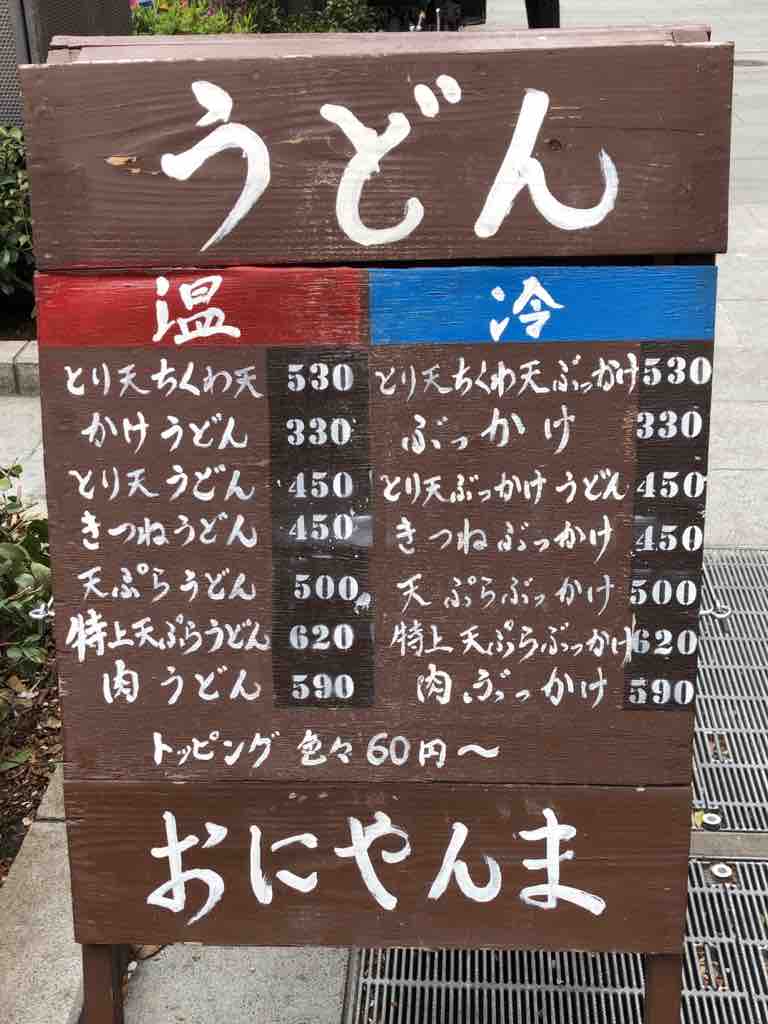 うどん
温 冷
とり天ちくわ天 530 とり天ちくわ天ぶっかけ 530
かけうどん 330 ぶっかけ 330
とり天うどん 450 とり天ぶっかけうどん 450
きつねうどん 450 きつねぶっかけ 450
天ぷらうどん 500 天ぷらぶっかけ 500
特上天ぷらうどん 620 特上天ぷらぶっかけ 620
肉うどん 590 肉ぶっかけ 590
トッピング 色々60円〜
おにやんま